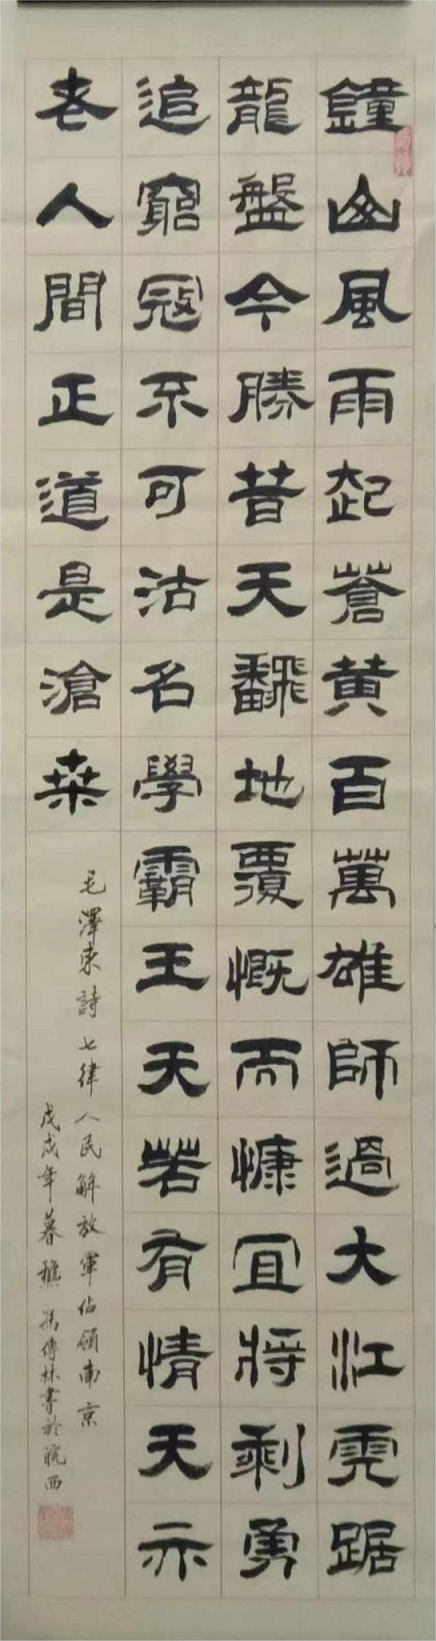 鐘山風雨起蒼黄百萬雄師過大江虎踞
龍盤今勝昔天翻地覆慨而慷宜將剩勇
追窮寇不可沽名學霸王天若有情天亦
老人間正道是滄桑
毛澤東詩七律人民解放軍佔領南京
戊戌年暮穐馮傳林書於皖西